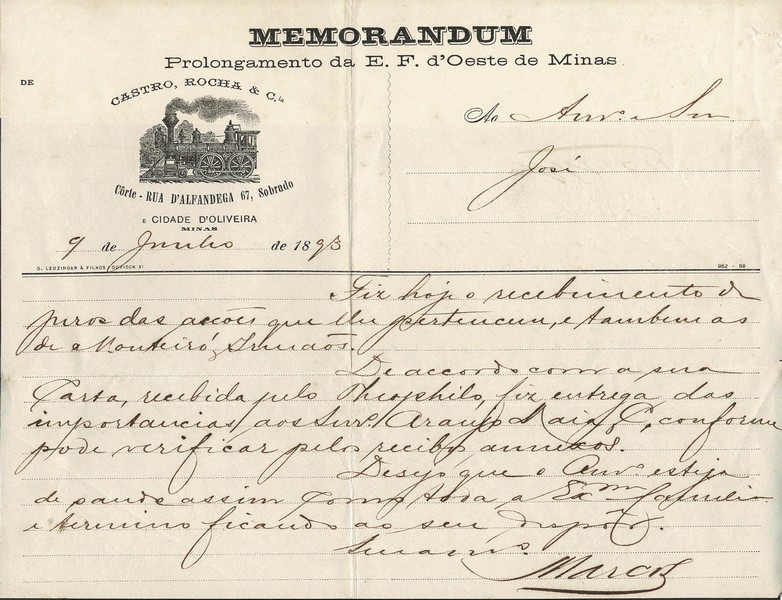 MEMORANDUM
Prolongamento da E. F. d'Oeste de Minas
DE
CASTRO, ROCHA & C.ia
Côrte - RUA D'ALFANDEGA 67, Sobrado
E CIDADE D'OLIVEIRA
MINAS
9 de Junho de 1893
Ao Amo. e Snr
José
G. LEUZINGER & FILHOS, OUVIDOR 31
962 - 88
Fiz hoje o recebimento de
juros das acções que lhe pertencem, e tambem as
de Monteiro Irmãos.
De accordo com a sua
Carta, recebida pelo Theophilo, fiz entrega das
importancias aos Snrs. Araujo Maia & C, conforme
pode verificar pelos recibos annexos.
Desejo que o Amo. esteja
de saude assim como toda a Exma. familia
e termino ficando ao seu dispôr.
Seu amo.
Marcos